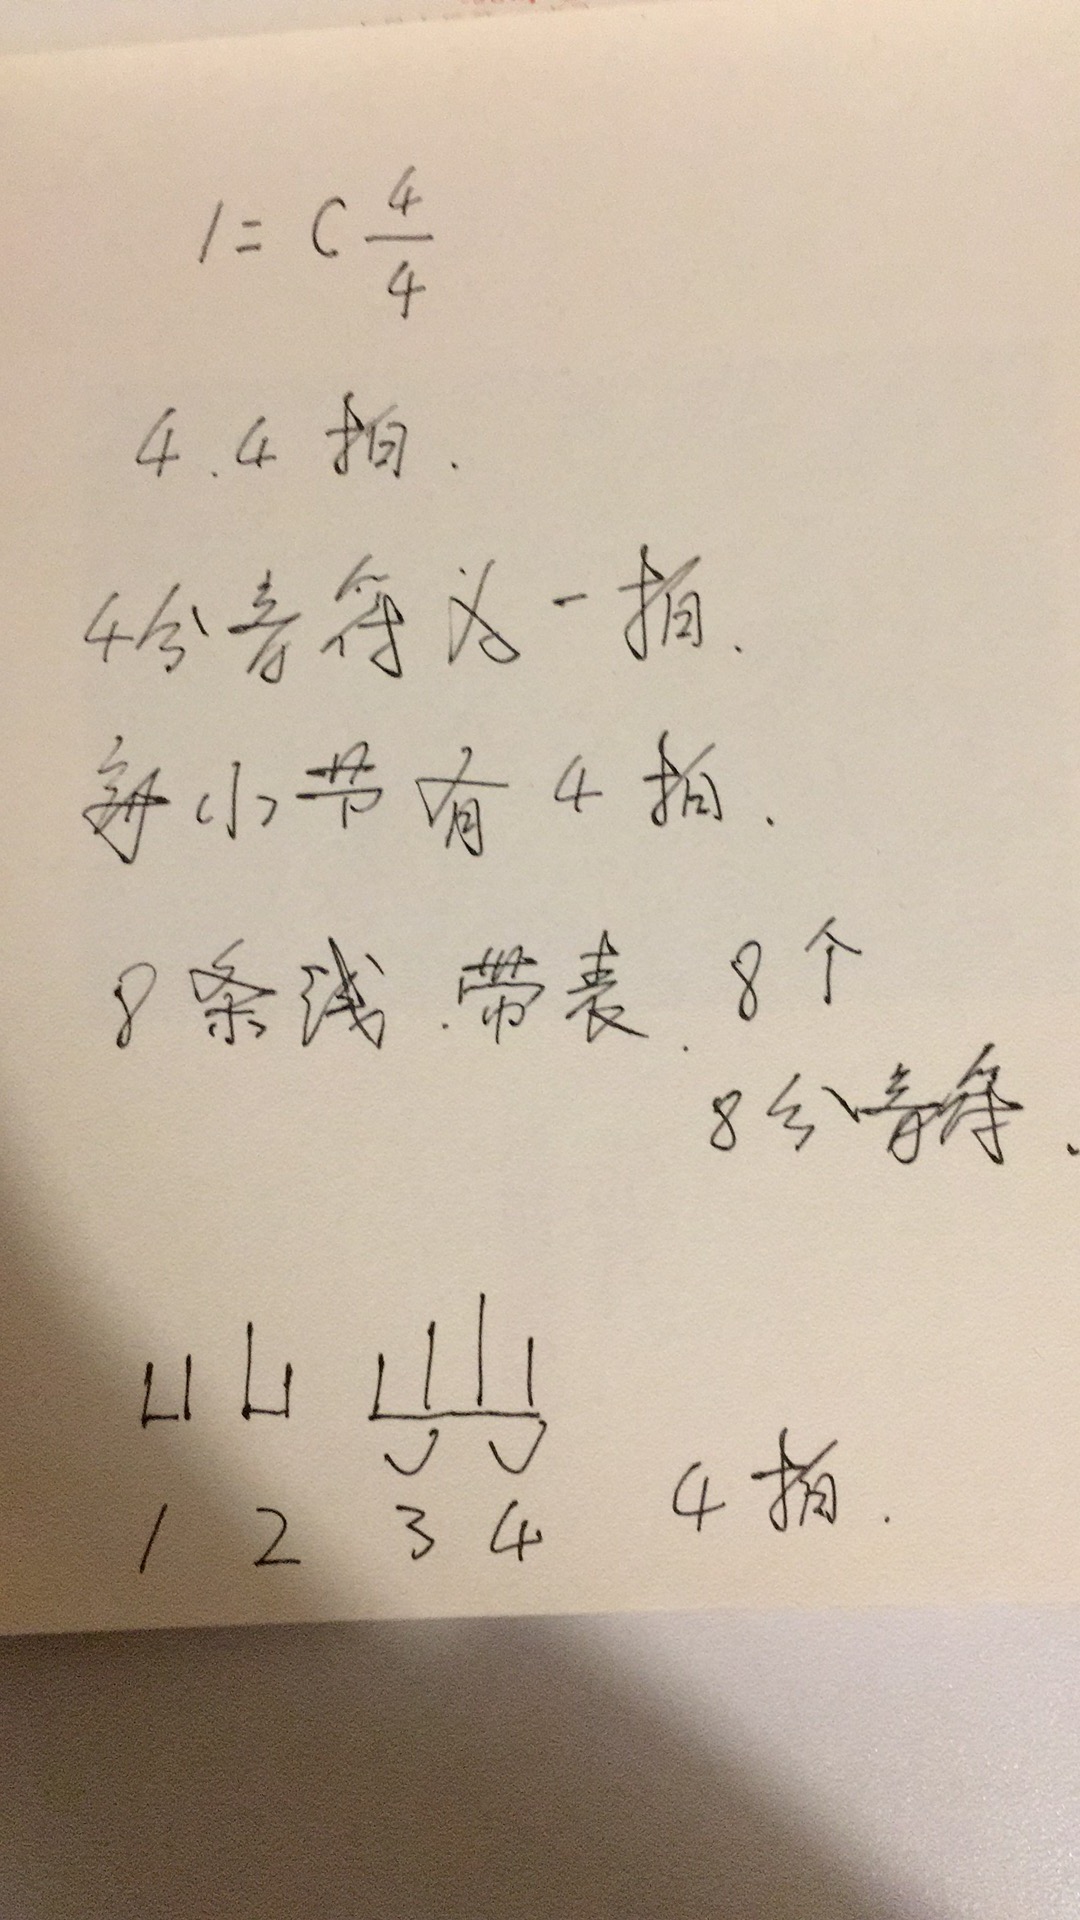 1=C 4/4
4.4拍.
4分音符为一拍.
每小节有4拍.
8条线.带表.8个
8分音符.
1 2 3 4 4拍.